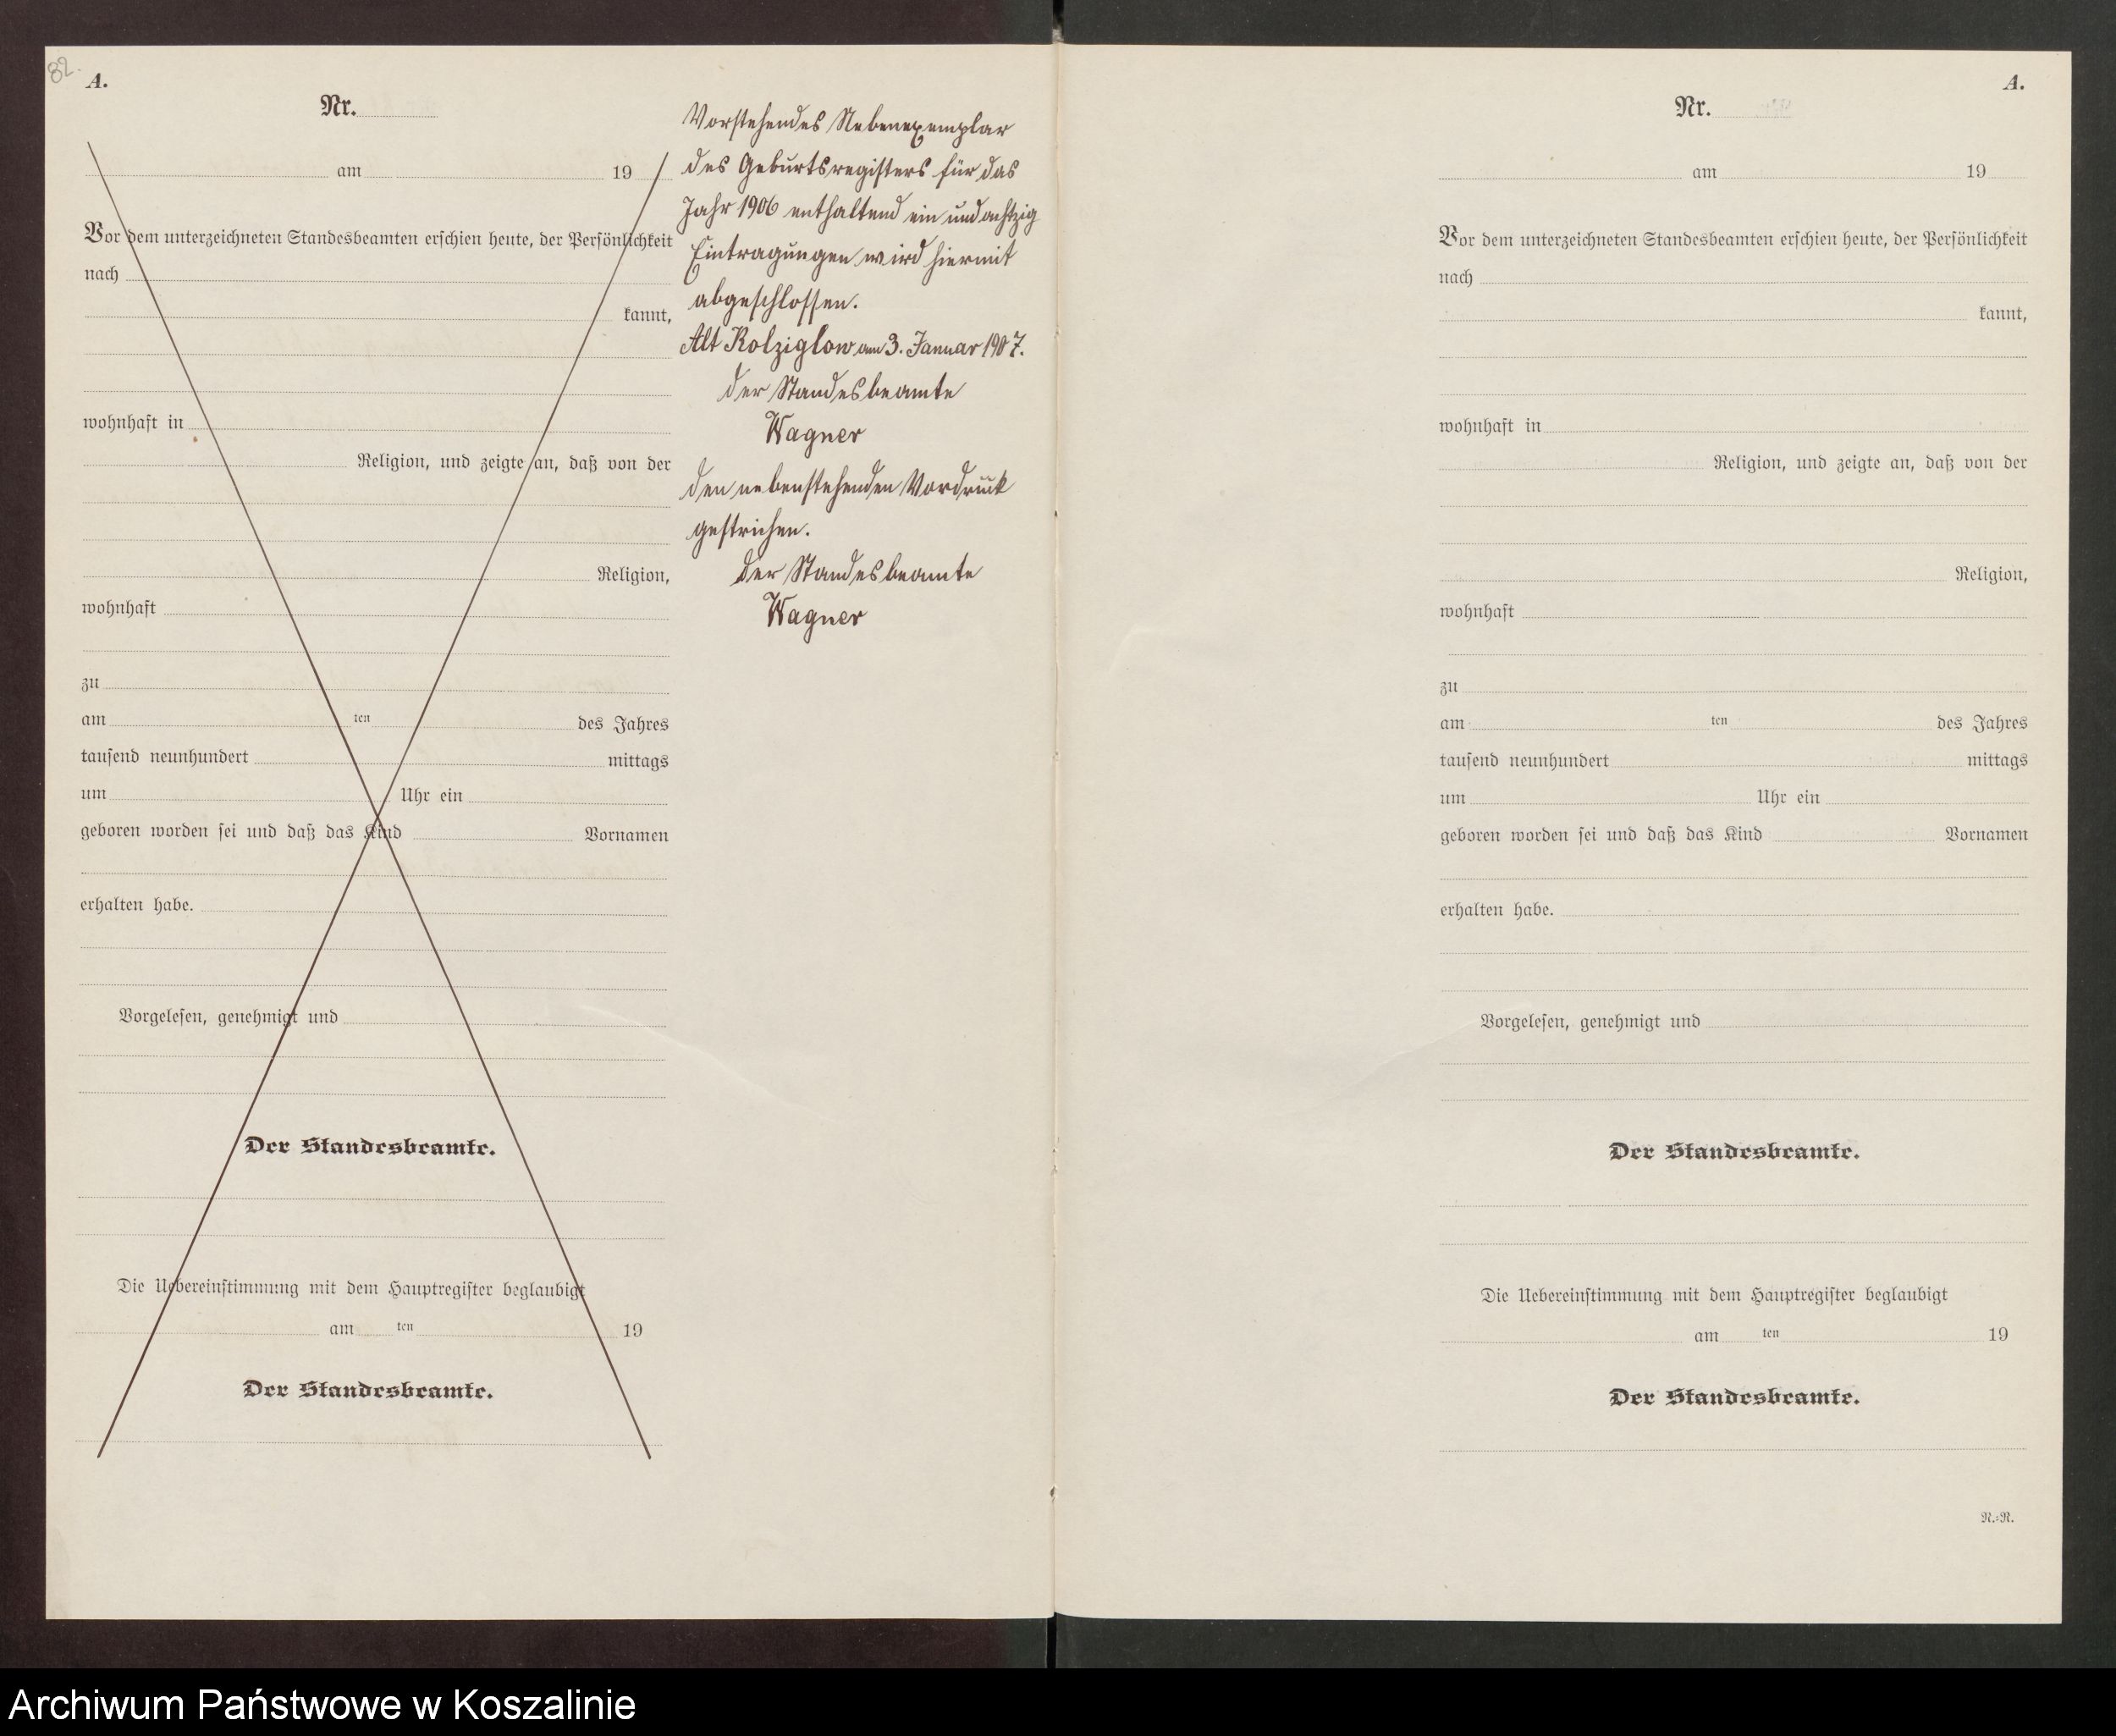 82.
A.
Nr.
am 19
Vor dem unterzeichneten Standesbeamten erschien heute, der Persönlichkeit
nach
kannt,
wohnhaft in
Religion, und zeigte an, daß von der
Religion,
wohnhaft
zu
am ten des Jahres
tausend neunhundert mittags
um Uhr ein
geboren worden sei und daß das Kind Vornamen
erhalten habe.
Vorgelesen, genehmigt und
Der Standesbeamte.
Die Uebereinstimmung mit dem Hauptregister beglaubigt
am ten 19
Der Standesbeamte.
Vorstehendes Nebenexemplar
des Geburtsregisters für das
Jahr 1906 enthaltend ein und achtzig
Eintragungen wird hiermit
abgeschlossen.
Alt Kolziglow am 3. Januar 1907.
der Standesbeamte
Wagner
den nebenstehenden Vordruck
gestrichen.
der Standesbeamte
Wagner
A.
Nr.
am 19
Vor dem unterzeichneten Standesbeamten erschien heute, der Persönlichkeit
nach
kannt,
wohnhaft in
Religion, und zeigte an, daß von der
Religion,
wohnhaft
zu
am ten des Jahres
tausend neunhundert mittags
um Uhr ein
geboren worden sei und daß das Kind Vornamen
erhalten habe.
Vorgelesen, genehmigt und
Der Standesbeamte.
Die Uebereinstimmung mit dem Hauptregister beglaubigt
am ten 19
Der Standesbeamte.
N.=R.
Archiwum Państwowe w Koszalinie